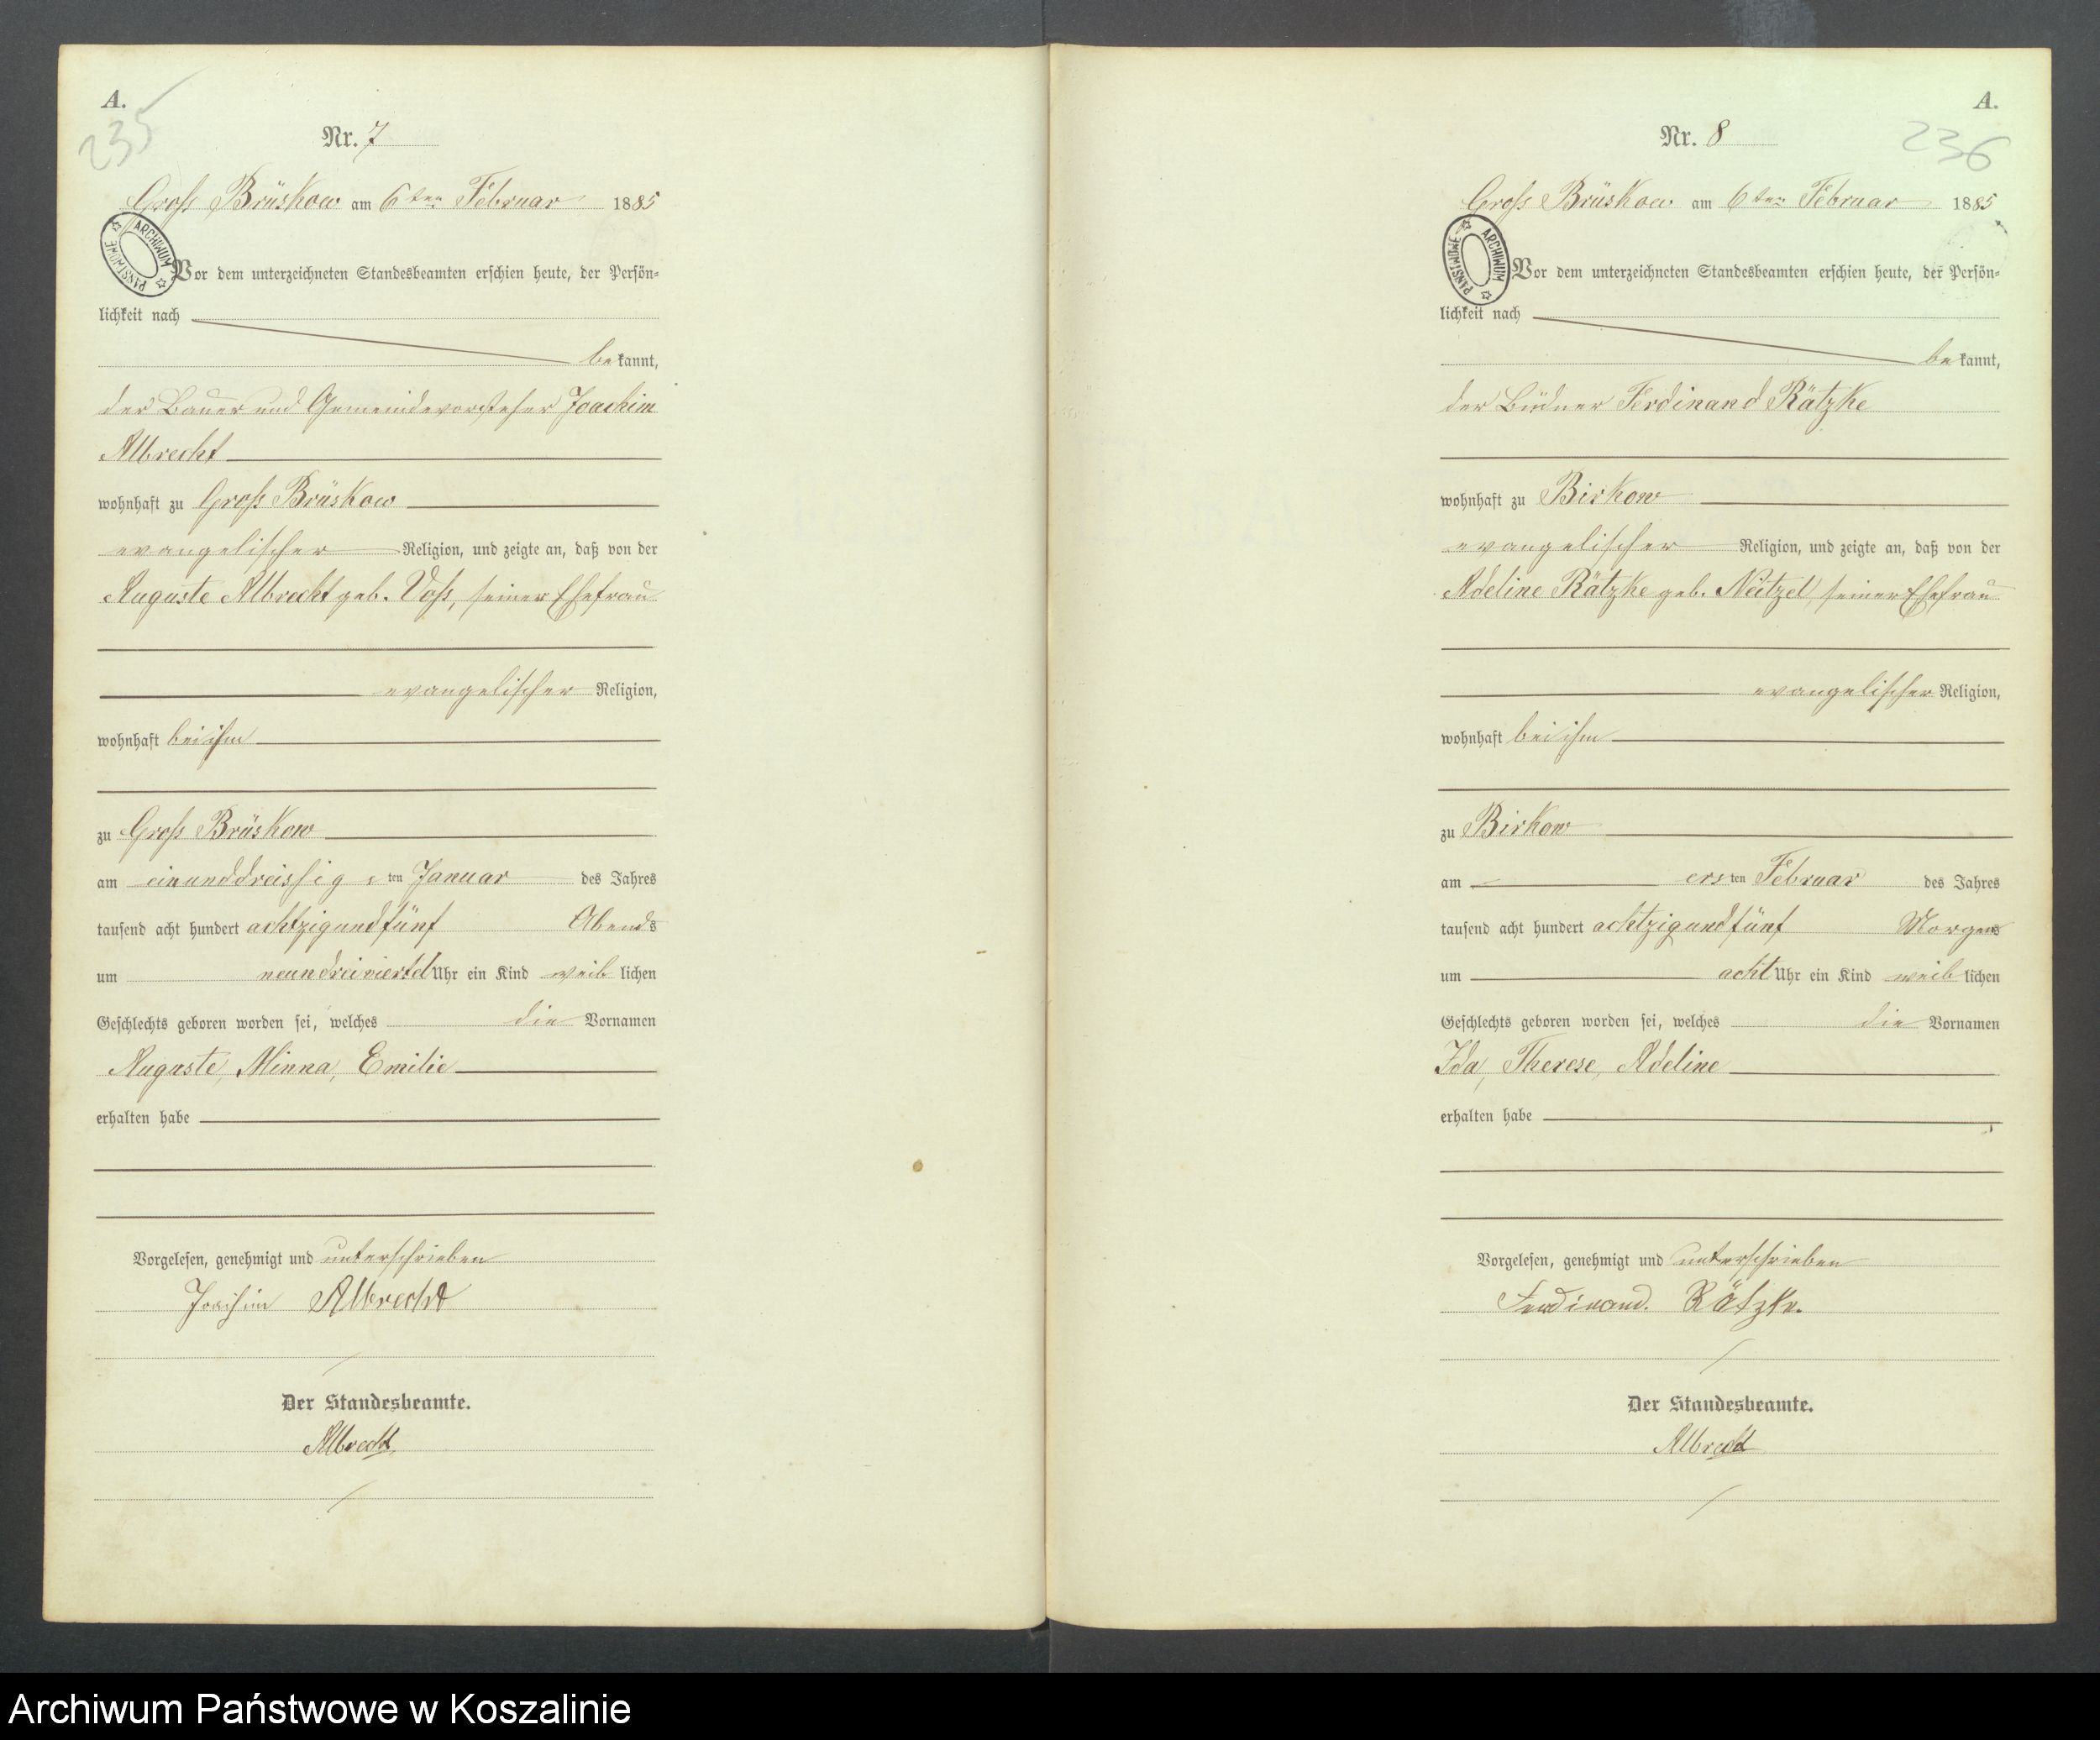 A.
235
Nr. 7
Groß Brüskow am 6ten Februar 1885
ARCHIWUM PAŃSTWOWE
Vor dem unterzeichneten Standesbeamten erschien heute, der Persön-
lichkeit nach
bekannt,
der Bauer und Gemeindevorsteher Joachim
Albrecht
wohnhaft zu Groß Brüskow
evangelischer Religion, und zeigte an, daß von der
Auguste Albrecht geb. Voß, seiner Ehefrau
evangelischer Religion,
wohnhaft bei ihm
zu Groß Brüskow
am einunddreissigsten Januar des Jahres
tausend acht hundert achtzigundfünf Abends
um neundreiviertel Uhr ein Kind weiblichen
Geschlechts geboren worden sei, welches die Vornamen
Auguste, Minna, Emilie
erhalten habe
Vorgelesen, genehmigt und unterschrieben
Joachim Albrecht
Der Standesbeamte.
Albrecht
A.
236
Nr. 8
Groß Brüskow am 6ten Februar 1885
ARCHIWUM PAŃSTWOWE
Vor dem unterzeichneten Standesbeamten erschien heute, der Persön-
lichkeit nach
bekannt,
der Büdner Ferdinand Rätzke
wohnhaft zu Birkow
evangelischer Religion, und zeigte an, daß von der
Adeline Rätzke geb. Neitzel, seiner Ehefrau
evangelischer Religion,
wohnhaft bei ihm
zu Birkow
am ersten Februar des Jahres
tausend acht hundert achtzigundfünf Morgens
um acht Uhr ein Kind weiblichen
Geschlechts geboren worden sei, welches die Vornamen
Ida, Therese, Adeline
erhalten habe
Vorgelesen, genehmigt und unterschrieben
Ferdinand. Rätzke.
Der Standesbeamte.
Albrecht
Archiwum Państwowe w Koszalinie